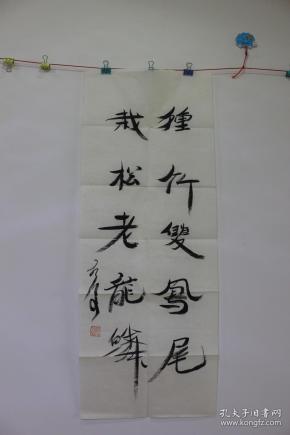 種竹雙鳳尾
栽松老龍鱗
孔夫子旧书网
www.kongfz.com